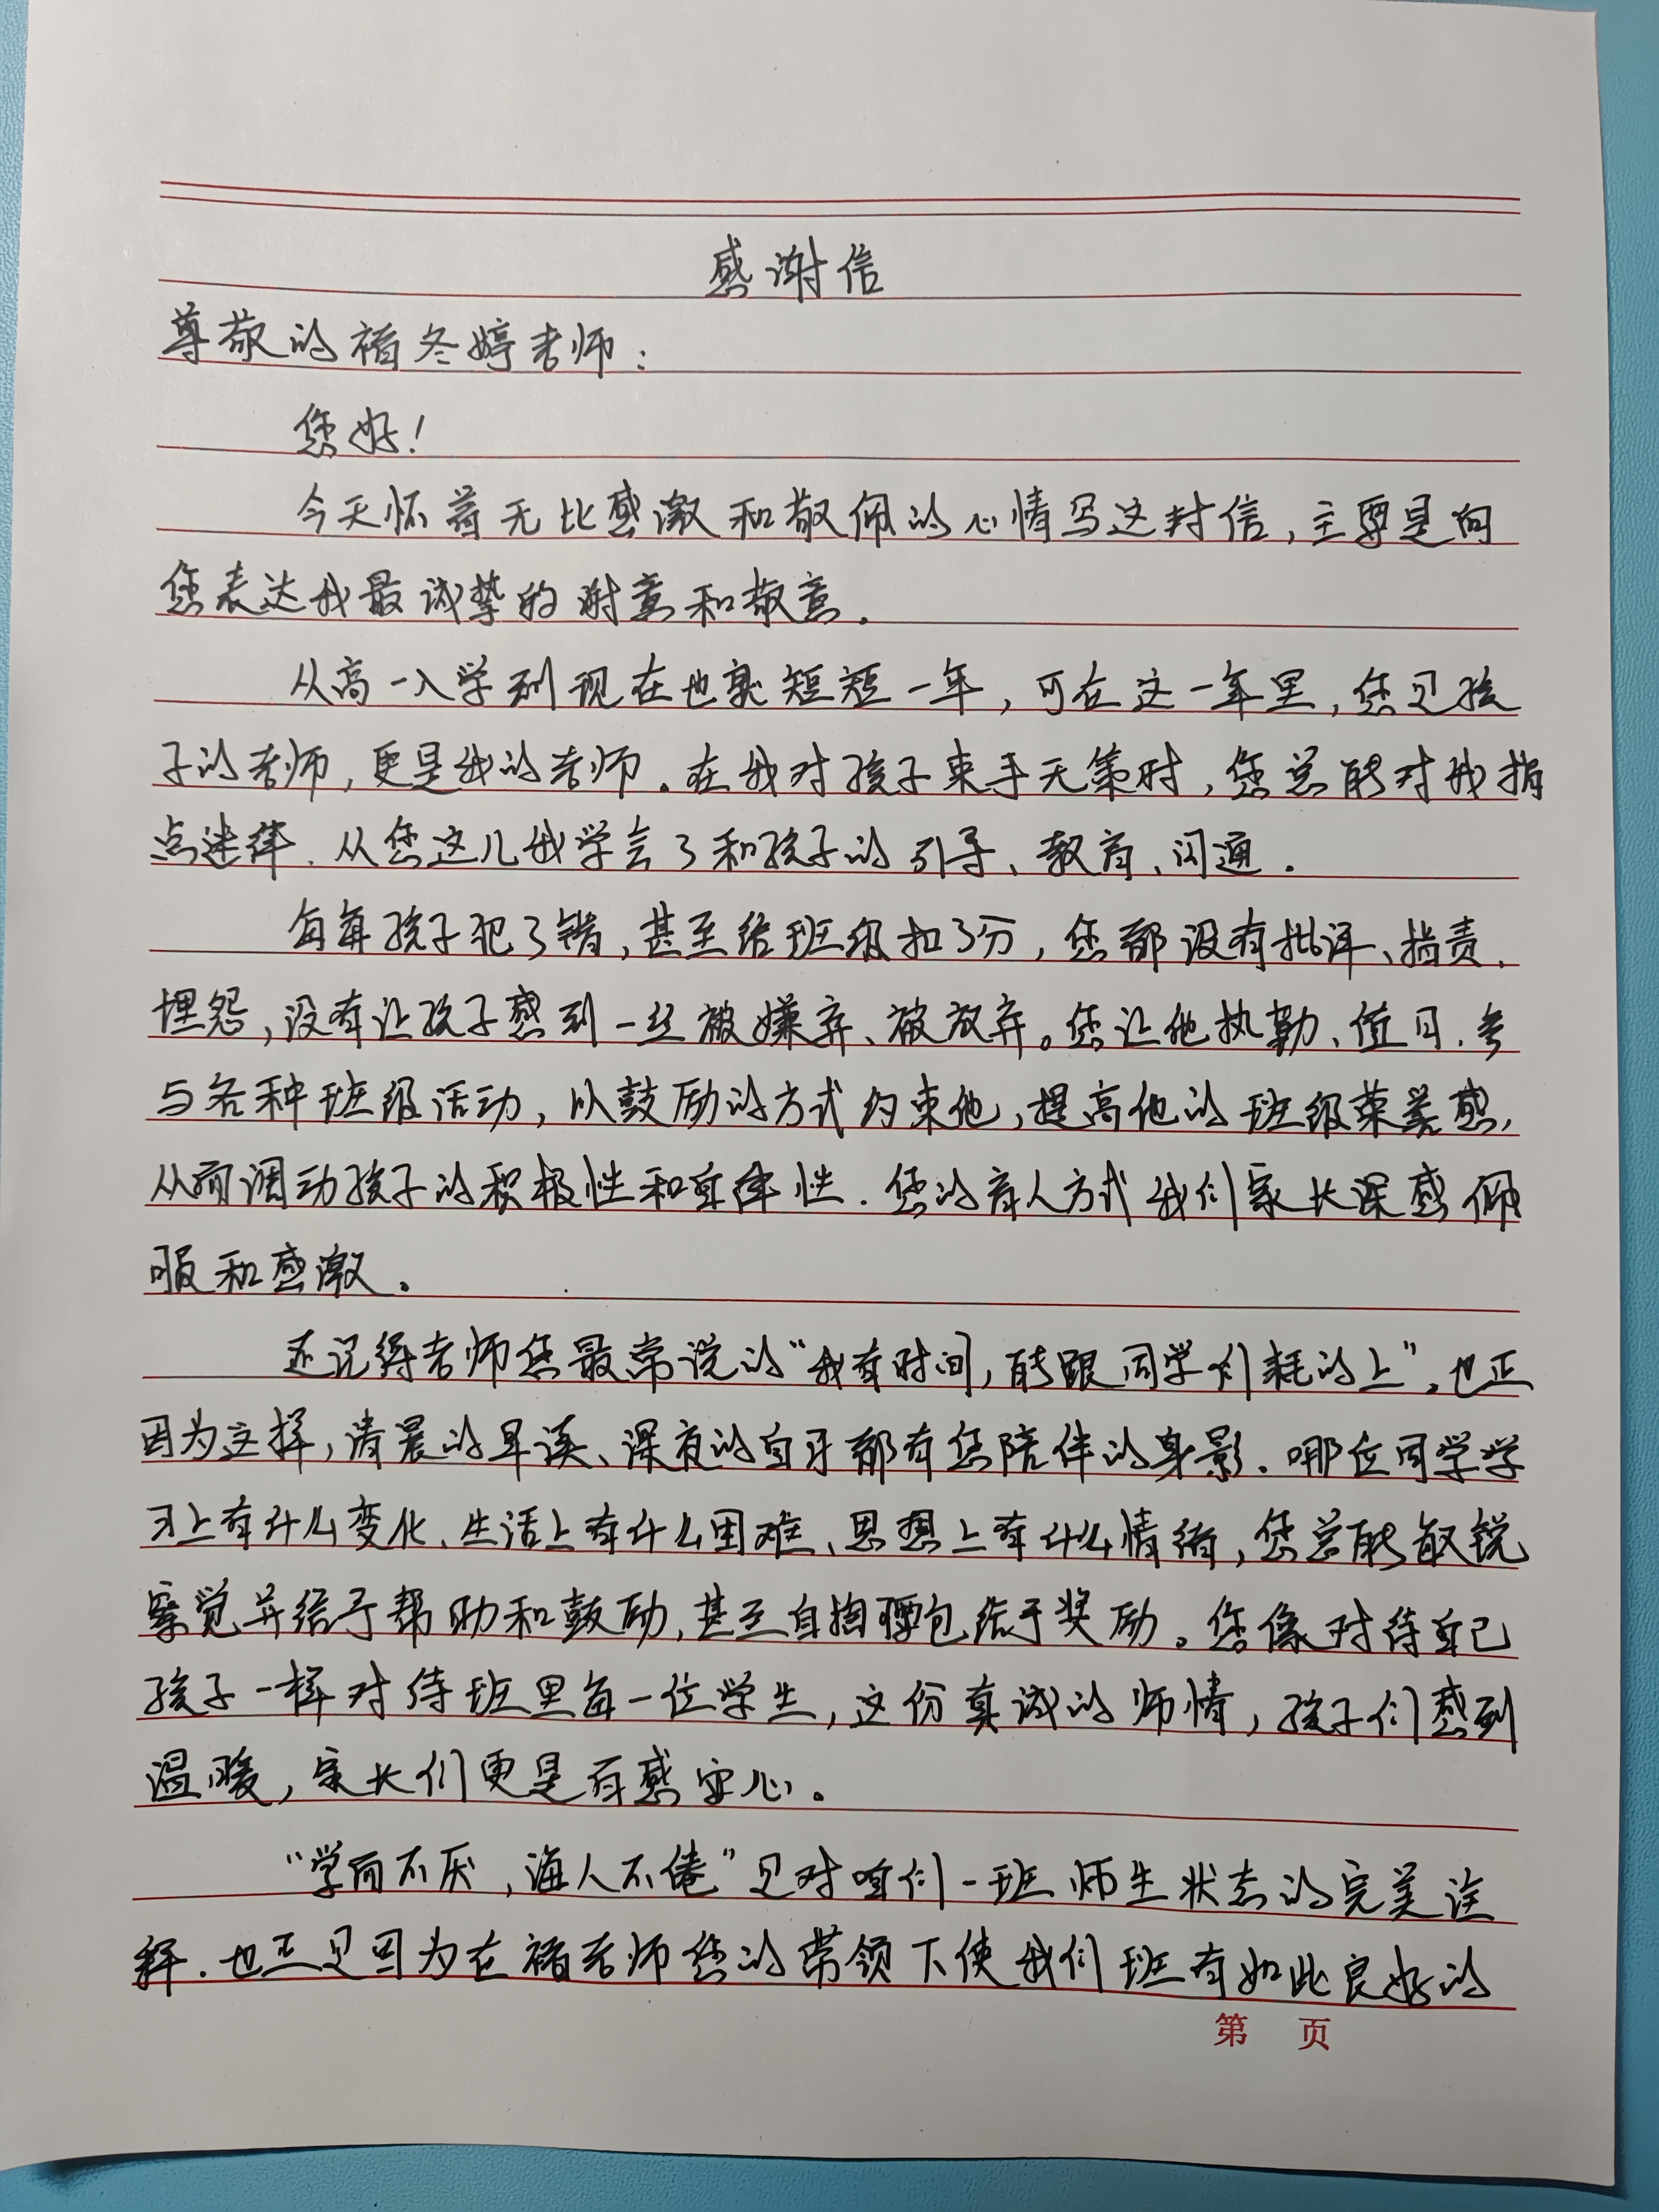 感谢信
尊敬的褚冬婷老师：
您好！
今天怀着无比感激和敬佩的心情写这封信，主要是向
您表达我最诚挚的谢意和敬意。
从高一入学到现在也就短短一年，可在这一年里，您是孩
子的老师，更是我的老师。在我对孩子束手无策时，您总能对我指
点迷津．从您这儿我学会了和孩子的引导、教育、沟通．
每每孩子犯了错，甚至给班级扣了分，您都没有批评、指责、
埋怨，没有让孩子感到一丝被嫌弃、被放弃。您让他执勤、值日、参
与各种班级活动，以鼓励的方式约束他，提高他的班级荣誉感，
从而调动孩子的积极性和自律性．您的育人方式我们家长深感佩
服和感激。
还记得老师您最常说的“我有时间，能跟同学们耗的上”，也正
因为这样，清晨的早读、深夜的自习都有您陪伴的身影．哪位同学学
习上有什么变化、生活上有什么困难、思想上有什么情绪，您总能敏锐
察觉并给予帮助和鼓励，甚至自掏腰包给予奖励。您像对待自己
孩子一样对待班里每一位学生，这份真诚的师情，孩子们感到
温暖，家长们更是百感安心。
“学而不厌，诲人不倦”是对咱们一班师生状态的完美诠
释．也正是因为在褚老师您的带领下使我们班有如此良好的
第 页